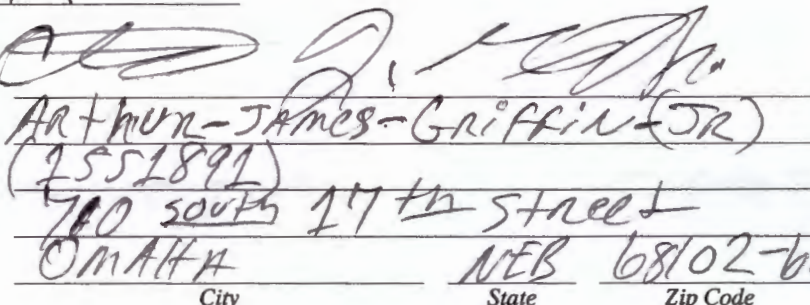 Arthur-James-Griffin-(JR)
(1551891)
710 south 17th street
OMAHA NEB 68102-6
City State Zip Code